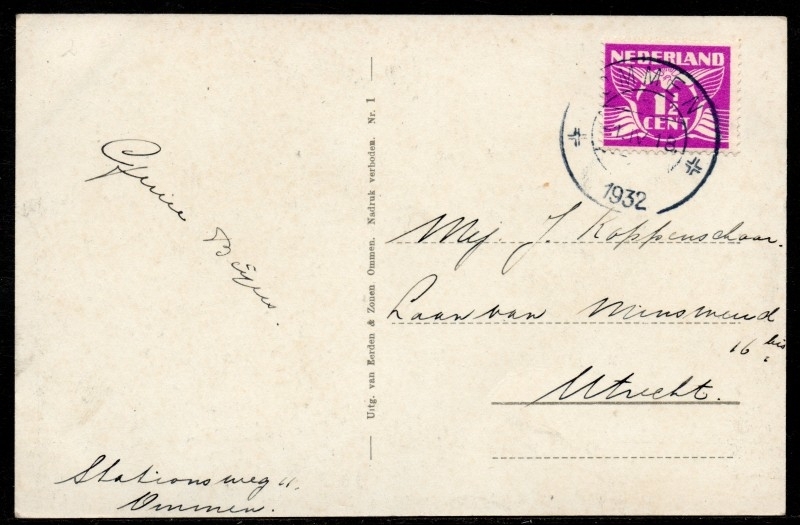 NEDERLAND
1½
CENT
OMMEN
18
1932
Mej. J. Koppenschaar.
Laan van Minswerd
16 bis
Utrecht.
Uitg. van Eerden & Zonen Ommen. Nadruk verboden. Nr. 1
Stationsweg
Ommen.